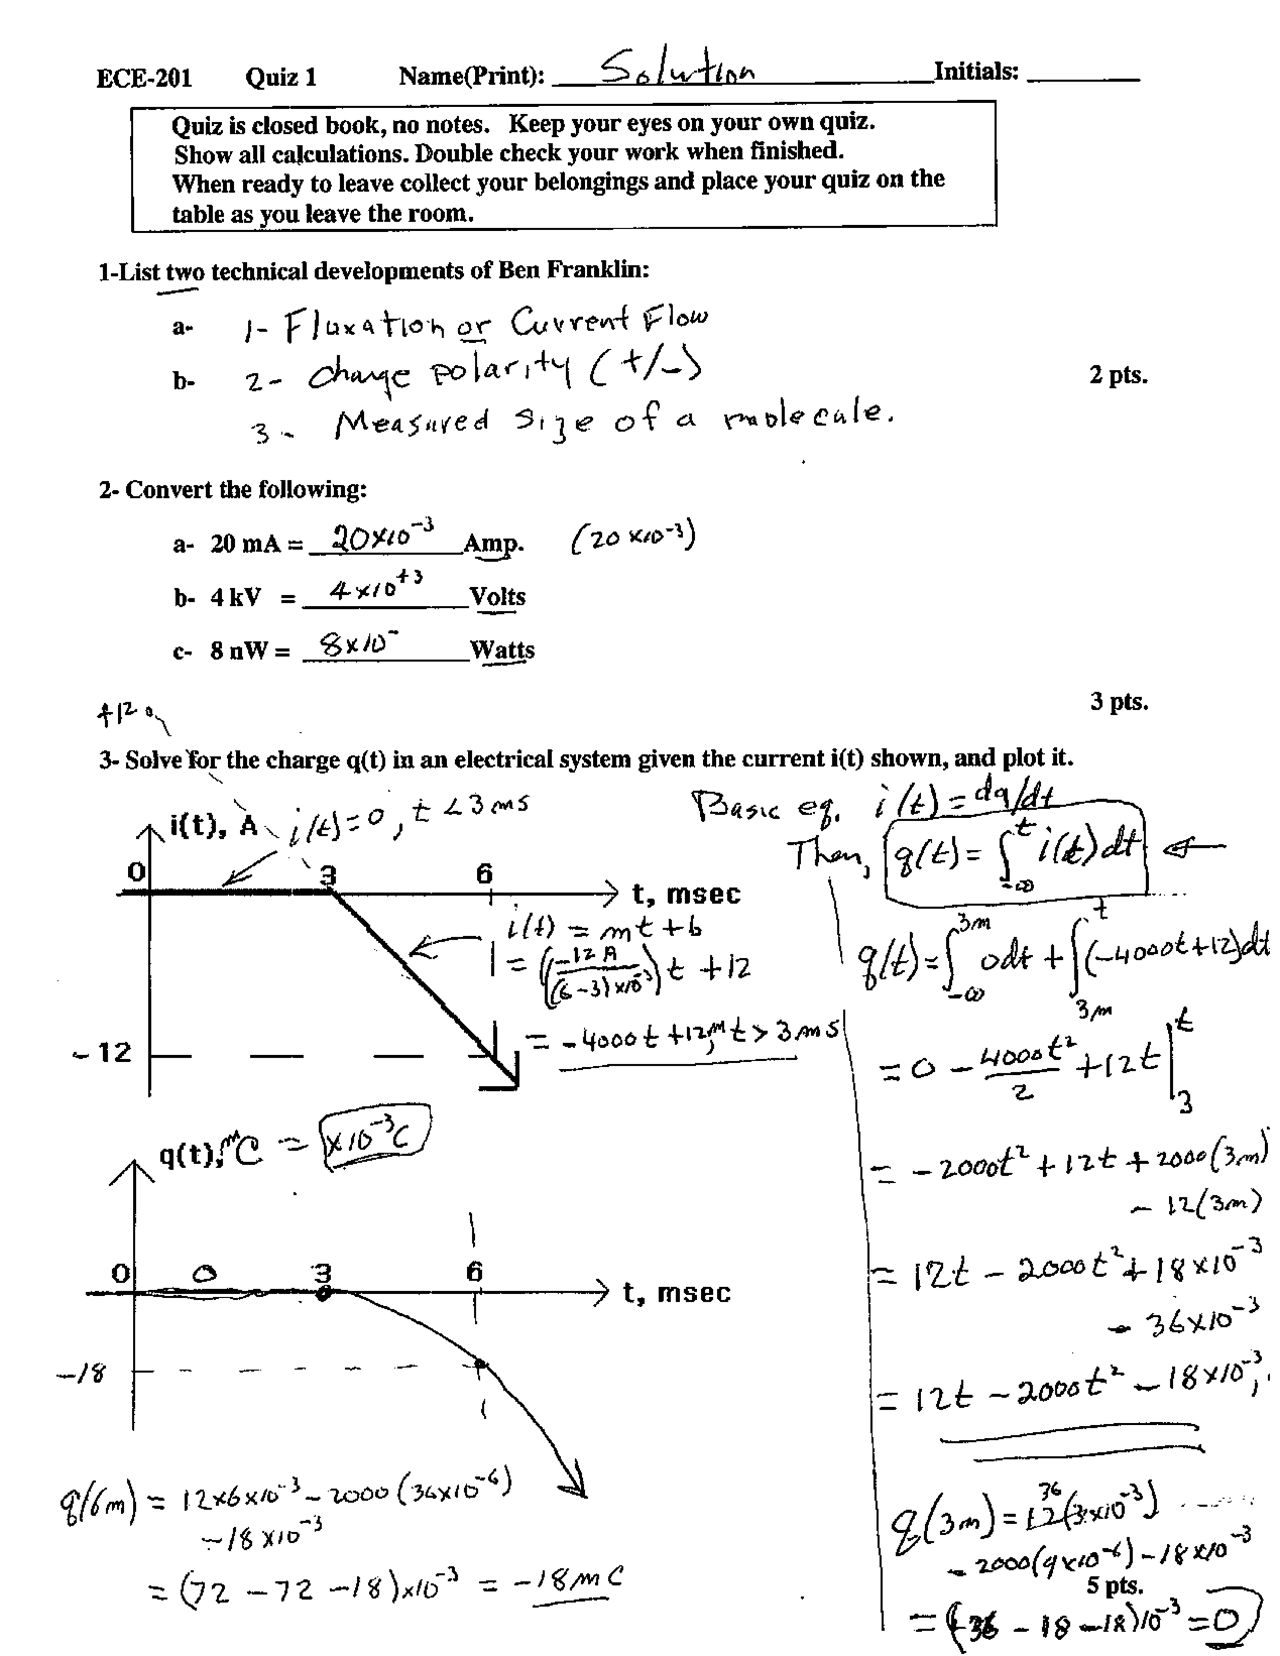 ECE-201 Quiz 1 Name(Print): Solution Initials:
Quiz is closed book, no notes. Keep your eyes on your own quiz.
Show all calculations. Double check your work when finished.
When ready to leave collect your belongings and place your quiz on the
table as you leave the room.
1-List two technical developments of Ben Franklin:
a- 1- Fluxation or Current Flow
b- 2- Charge polarity (+/-)
2 pts.
3- Measured size of a molecule.
2- Convert the following:
a- 20 mA = 20x10^-3 Amp. (20 x10^-3)
b- 4 kV = 4x10^+3 Volts
c- 8 nW = 8x10^- Watts
3 pts.
+12
3- Solve for the charge q(t) in an electrical system given the current i(t) shown, and plot it.
i(t), A
i(t)=0, t<3ms
0 3 6
t, msec
i(t) = mt+b
= ((-12 A)/((6-3)x10^-3))t +12
= -4000t +12, t>3ms
-12
Basic eq. i(t)=dq/dt
Then, q(t) = ∫_-∞^t i(t)dt
q(t)=∫_-∞^3m 0dt + ∫_3m^t (-4000t+12)dt
= 0 - 4000t^2/2 +12t |_3^t
= -2000t^2 +12t +2000(3m)
- 12(3m)
= 12t - 2000t^2 + 18x10^-3
- 36x10^-3
= 12t - 2000t^2 - 18x10^-3,
q(t), mC = x10^-3 C
0 0 3 6
t, msec
-18
q(6m) = 12x6x10^-3 - 2000(36x10^-6)
-18x10^-3
= (72 - 72 -18)x10^-3 = -18mC
36
q(3m) = 12(3x10^-3)
- 2000(9x10^-6) -18x10^-3
5 pts.
= (+36 - 18 -18)10^-3 = 0